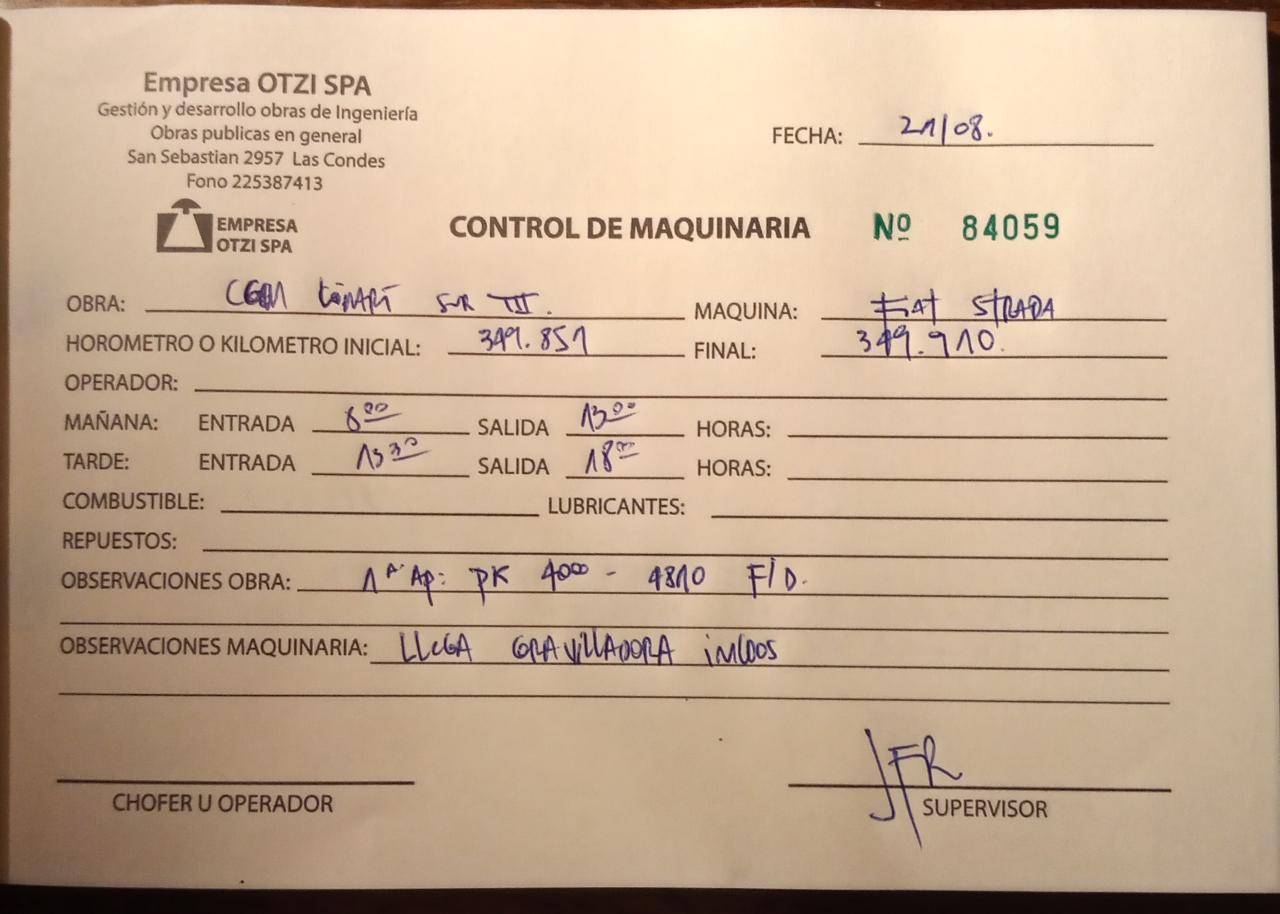 Empresa OTZI SPA
Gestión y desarrollo obras de Ingeniería
Obras publicas en general
San Sebastian 2957 Las Condes
Fono 225387413
FECHA: 21/08.
EMPRESA
OTZI SPA
CONTROL DE MAQUINARIA Nº 84059
OBRA: SUR III. MAQUINA: FiAt STRADA
HOROMETRO O KILOMETRO INICIAL: 349.851 FINAL: 349.910.
OPERADOR:
MAÑANA: ENTRADA 8⁰⁰ SALIDA 13⁰⁰ HORAS:
TARDE: ENTRADA 13³⁰ SALIDA 18⁰⁰ HORAS:
COMBUSTIBLE: LUBRICANTES:
REPUESTOS:
OBSERVACIONES OBRA: 1ª Ap: PK 4000 - 4810 F/D.
OBSERVACIONES MAQUINARIA: LLEGA GRAVILLADORA
JFR
CHOFER U OPERADOR SUPERVISOR